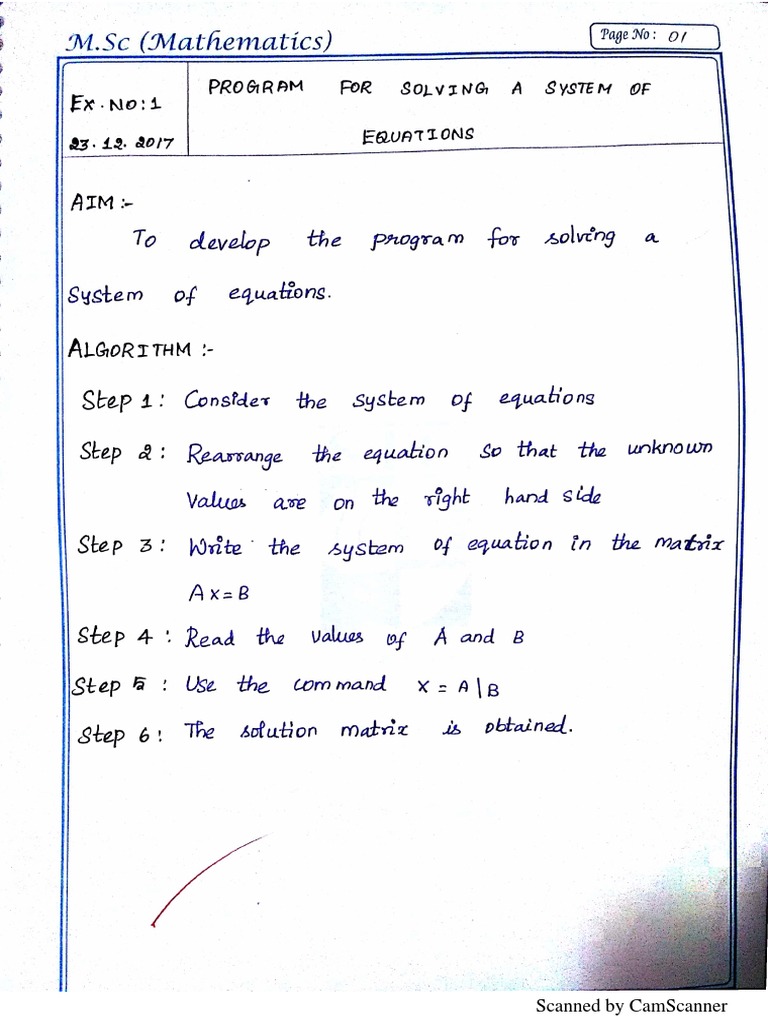 M.Sc (Mathematics)
Page No: 01
Ex. No:1
23.12.2017
PROGRAM FOR SOLVING A SYSTEM OF
EQUATIONS
AIM :-
To develop the program for solving a
System of equations.
ALGORITHM :-
Step 1: Consider the system of equations
Step 2: Rearrange the equation so that the unknown
values are on the right hand side
Step 3: Write the system of equation in the matrix
Ax=B
Step 4: Read the values of A and B
Step 5: Use the command x = A\B
Step 6: The solution matrix is obtained.
Scanned by CamScanner